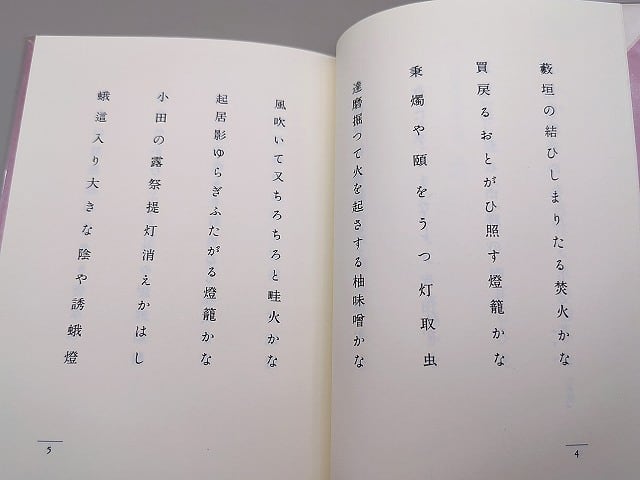 藪垣の結ひしまりたる焚火かな
買戻るおとがひ照す燈籠かな
秉燭や頤をうつ灯取虫
達磨掘つて火を起さする柚味噌かな
4
風吹いて又ちろちろと畦火かな
起居影ゆらぎふたがる燈籠かな
小田の露祭提灯消えかはし
蛾這入り大きな陰や誘蛾燈
5